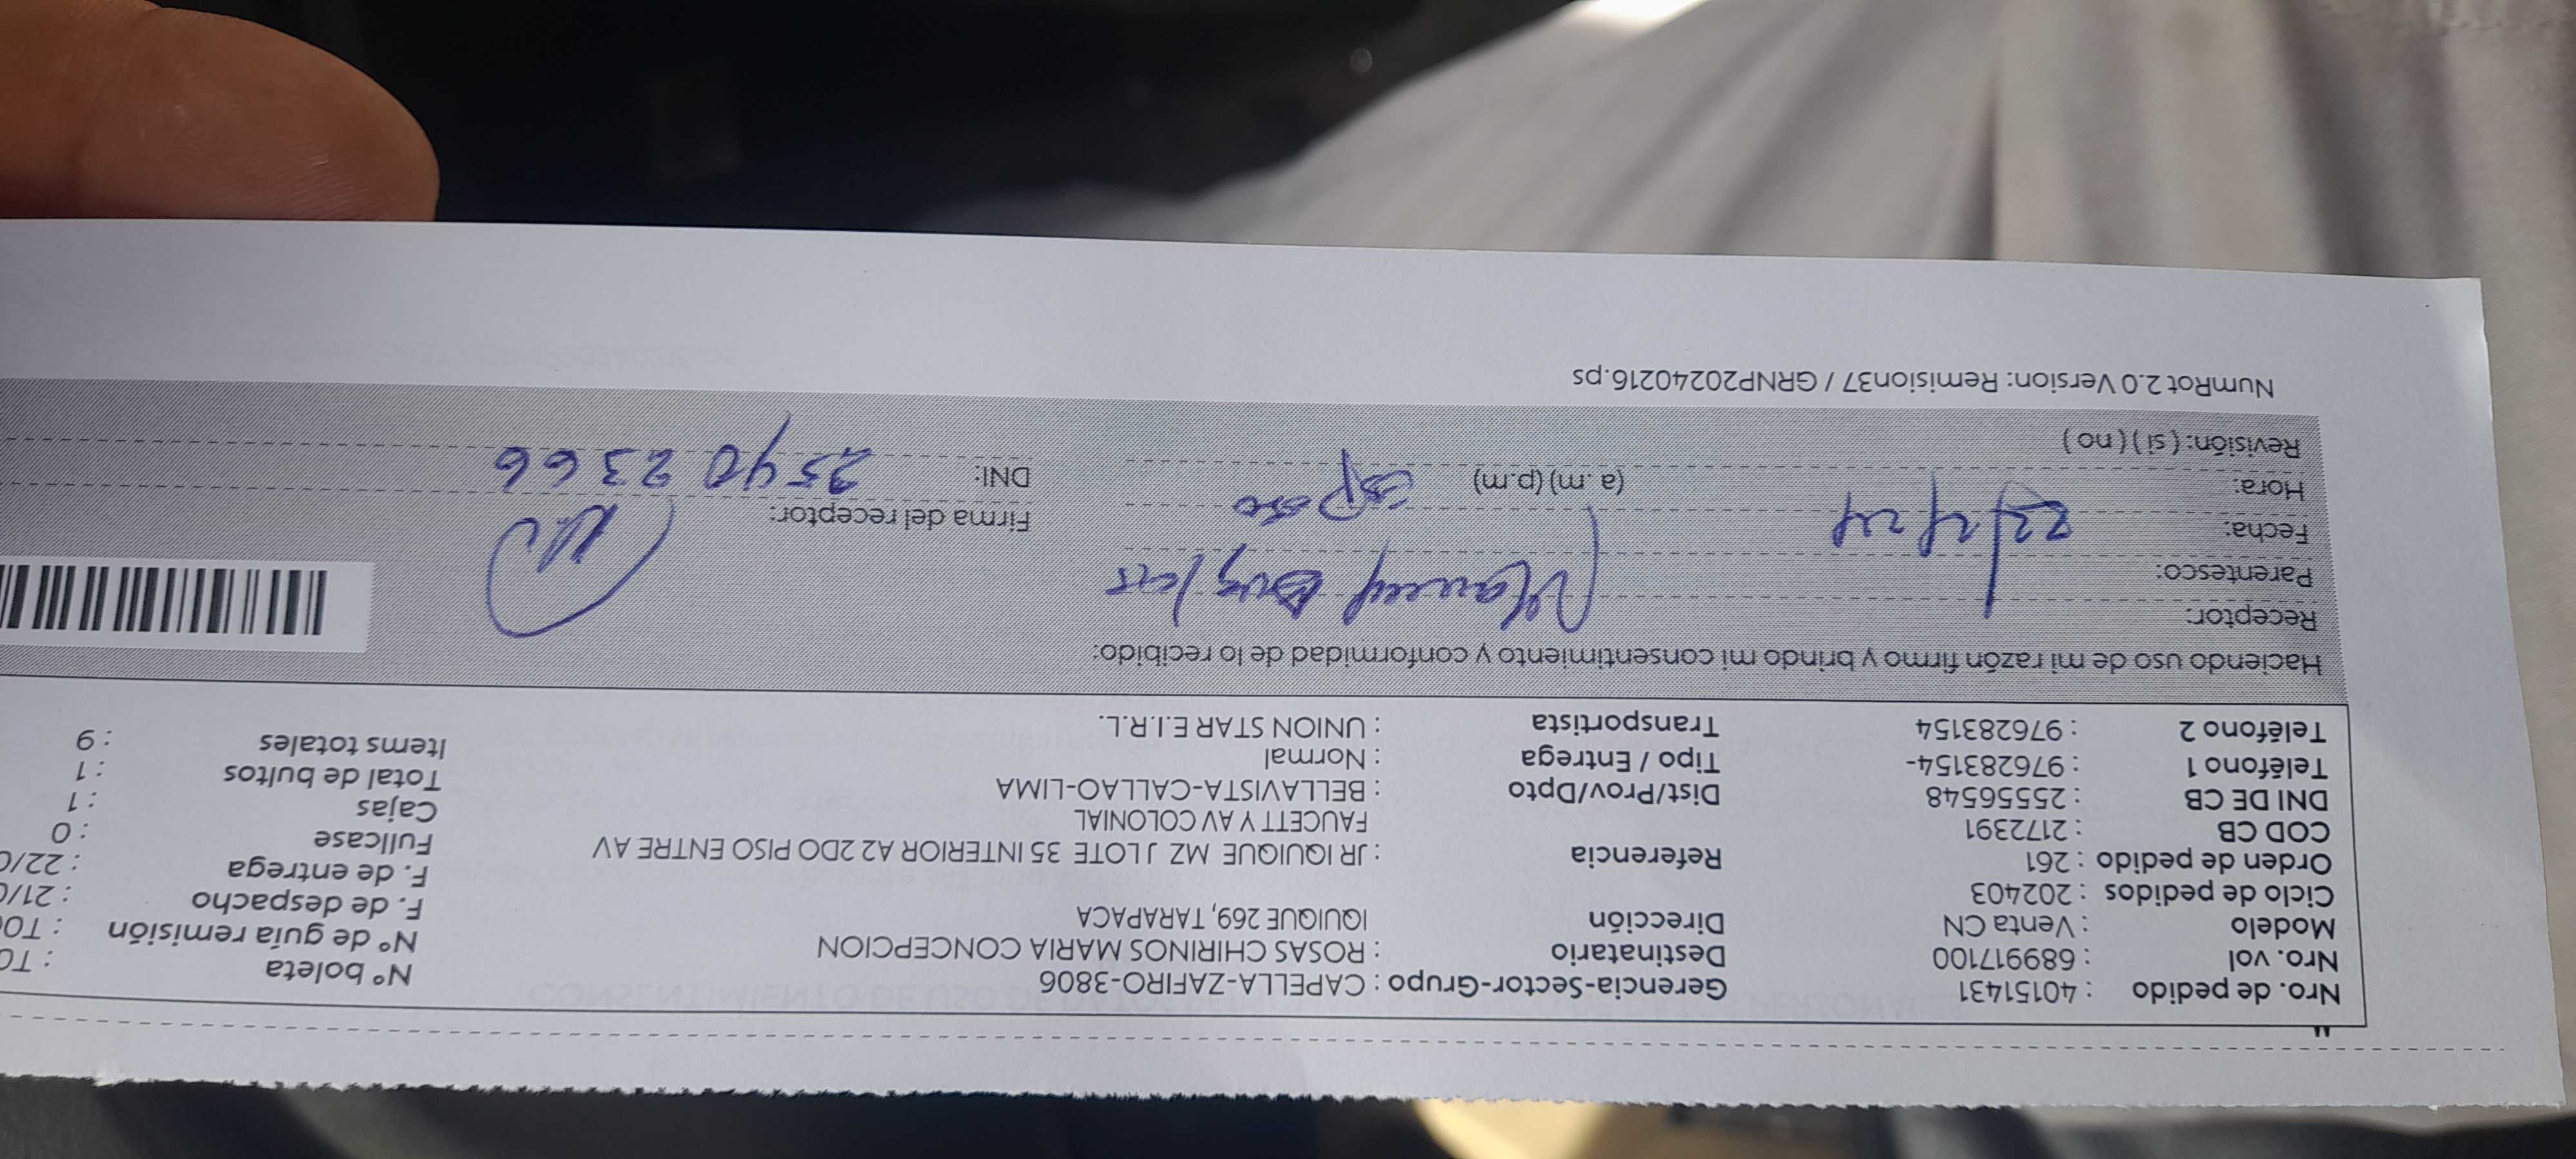 Nro. de pedido : 40151431 Gerencia-Sector-Grupo : CAPELLA-ZAFIRO-3806 N° boleta : T0
Nro. vol : 689917100 Destinatario : ROSAS CHIRINOS MARIA CONCEPCION N° de guía remisión : T00
Modelo : Venta CN Dirección IQUIQUE 269, TARAPACA F. de despacho : 21/0
Ciclo de pedidos : 202403 F. de entrega : 22/0
Orden de pedido : 261 Referencia : JR IQUIQUE MZ J LOTE 35 INTERIOR A2 2DO PISO ENTRE AV Fullcase : 0
COD CB : 2172391 FAUCETT Y AV COLONIAL Cajas : 1
DNI DE CB : 25556548 Dist/Prov/Dpto : BELLAVISTA-CALLAO-LIMA Total de bultos : 1
Teléfono 1 : 976283154- Tipo / Entrega : Normal Items totales : 9
Teléfono 2 : 976283154 Transportista : UNION STAR E.I.R.L.
Haciendo uso de mi razón firmo y brindo mi consentimiento y conformidad de lo recibido:
Receptor:
Parentesco:
Fecha: Firma del receptor:
Hora: (a.m) (p.m) esposo DNI: 25402366
Revisión: ( si ) ( no )
NumRot 2.0 Version: Remision37 / GRNP20240216.ps